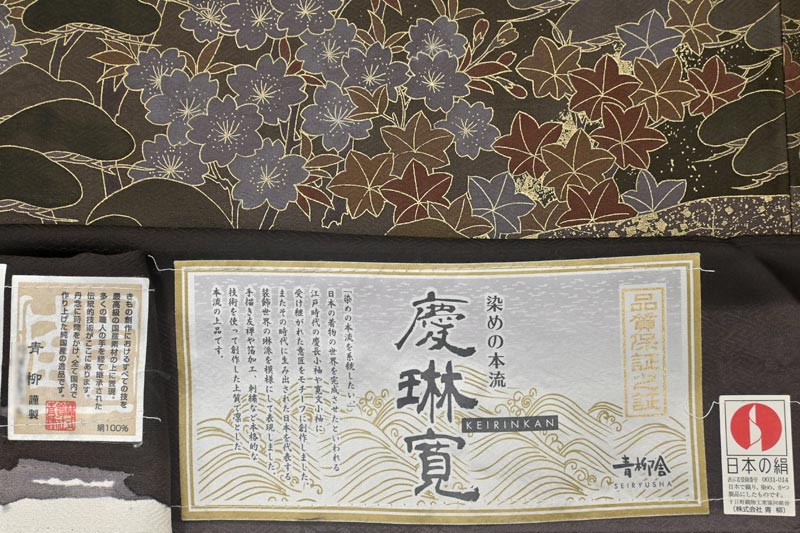 品質保証之証
染めの本流
慶琳寛
KEIRINKAN
「染めの本流を系統したい。」
日本の着物の世界を完成させたといわれる
江戸時代の慶長小袖や寛文小袖に
受け継がれた意匠をモチーフに創作しました。
またその時代に生み出された日本を代表する
装飾世界の琳派を模様にして表現しました。
手描き友禅や箔加工、刺繍など本格的な
技術を使って創作した上質で凛とした
本流の上品です。
青柳舎
SEIRYUSHA
きもの創作におけるすべての技を
最高級の国産素材の上に表現。
多くの職人の手を経て継承された
伝統的技術がここにあります。
丹念に時間をかけ、全て国内で
作り上げた純国産の逸品です。
青柳 謹製
絹100%
日本の絹
表示者登録番号 0031-014
日本で織り、染め、かつ
製品にしたものです。
十日町織物工業協同組合
(株式会社 青柳)